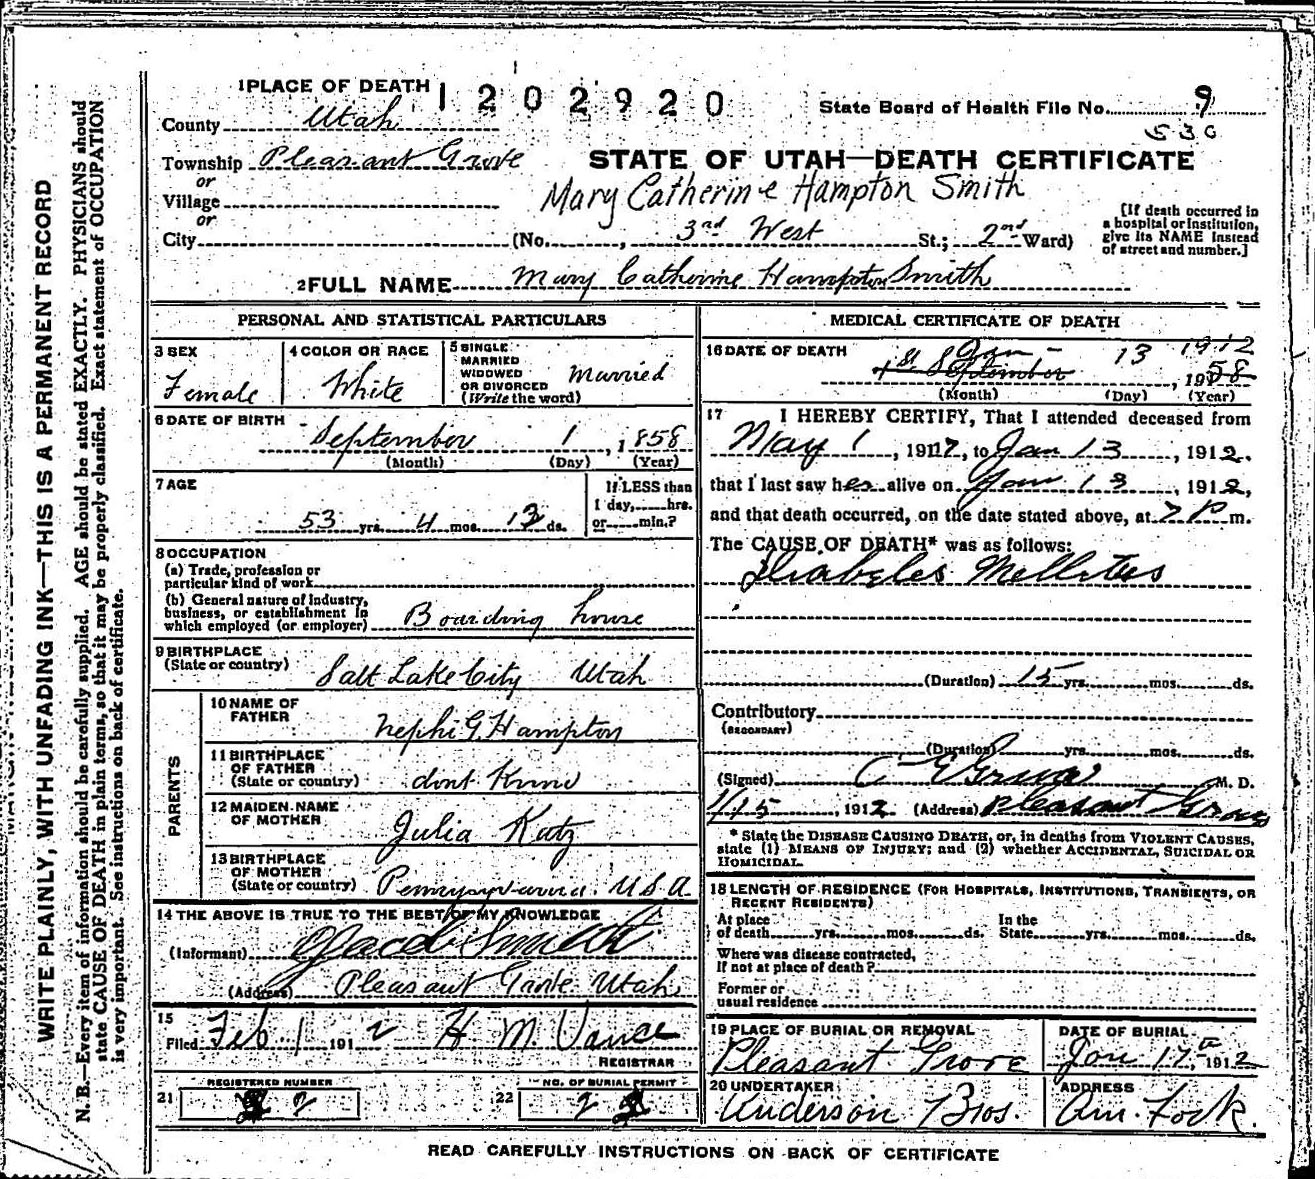 1 PLACE OF DEATH
1 2 0 2 9 2 0
State Board of Health File No. 9
530
County Utah
Township Pleasant Grove
or
Village
or
City
STATE OF UTAH—DEATH CERTIFICATE
Mary Catherine Hampton Smith
(No. , 3rd West St.; 2nd Ward)
[If death occurred in
a hospital or institution,
give its NAME instead
of street and number.]
2 FULL NAME Mary Catherine Hampton Smith
PERSONAL AND STATISTICAL PARTICULARS
3 SEX
Female
4 COLOR OR RACE
White
5 SINGLE
MARRIED
WIDOWED
OR DIVORCED
(Write the word)
Married
6 DATE OF BIRTH
September 1, 1858
(Month) (Day) (Year)
7 AGE
53 yrs. 4 mos. 12 ds.
If LESS than
1 day, hrs.
or min.?
8 OCCUPATION
(a) Trade, profession or
particular kind of work
(b) General nature of industry,
business, or establishment in
which employed (or employer) Boarding house
9 BIRTHPLACE
(State or country) Salt Lake City Utah
PARENTS
10 NAME OF
FATHER
Nephi G. Hampton
11 BIRTHPLACE
OF FATHER
(State or country) dont Know
12 MAIDEN NAME
OF MOTHER
Julia Katz
13 BIRTHPLACE
OF MOTHER
(State or country) U.S.A.
14 THE ABOVE IS TRUE TO THE BEST OF MY KNOWLEDGE
(Informant) Smith
(Address) Pleasant Grove Utah
15
Filed Feb. 1 1912 H. M. Vance
REGISTRAR
21
REGISTERED NUMBER
2
22
NO. OF BURIAL PERMIT
2
MEDICAL CERTIFICATE OF DEATH
16 DATE OF DEATH
Jan - 13 1912
1st September , 1958
(Month) (Day) (Year)
17 I HEREBY CERTIFY, That I attended deceased from
May 1, 191 , to Jan 13, 1912,
that I last saw her alive on Jan 13, 1912,
and that death occurred, on the date stated above, at 7 P m.
The CAUSE OF DEATH* was as follows:
Diabetes Mellitus
(Duration) 15 yrs. mos. ds.
Contributory
(SECONDARY)
(Duration) yrs. mos. ds.
(Signed) M. D.
1/15, 1912 (Address) Pleasant Grove
* State the DISEASE CAUSING DEATH, or, in deaths from VIOLENT CAUSES,
state (1) MEANS OF INJURY; and (2) whether ACCIDENTAL, SUICIDAL OR
HOMICIDAL.
18 LENGTH OF RESIDENCE (FOR HOSPITALS, INSTITUTIONS, TRANSIENTS, OR
RECENT RESIDENTS)
At place
of death yrs. mos. ds.
In the
State yrs. mos. ds.
Where was disease contracted,
If not at place of death?
Former or
usual residence
19 PLACE OF BURIAL OR REMOVAL
Pleasant Grove
DATE OF BURIAL
Jan 17th, 1912
20 UNDERTAKER
Anderson Bros.
ADDRESS
Am. Fork.
READ CAREFULLY INSTRUCTIONS ON BACK OF CERTIFICATE
WRITE PLAINLY, WITH UNFADING INK—THIS IS A PERMANENT RECORD
N. B.—Every item of information should be carefully supplied. AGE should be stated EXACTLY. PHYSICIANS should
state CAUSE OF DEATH in plain terms, so that it may be properly classified. Exact statement of OCCUPATION
is very important. See instructions on back of certificate.